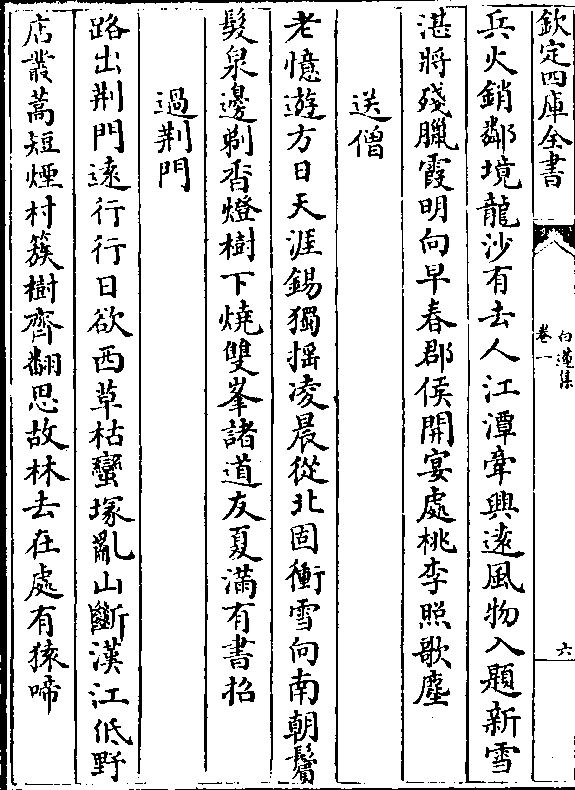 欽定四庫全書
白蓮集
卷一
六
兵火銷鄰境龍沙有去人江潭牽興遠風物入題新雪
湛將殘臘霞明向早春郡侯開宴處桃李照歌塵
送僧
老憶遊方日天涯錫獨摇凌晨從北固衝雪向南朝鬢
髮泉邊剃香燈樹下燒雙峯諸道友夏滿有書招
過荆門
路出荆門遠行行日欲西草枯蠻塚亂山斷漢江低野
店叢蒿短煙村簇樹齊翻思故林去在處有猿啼